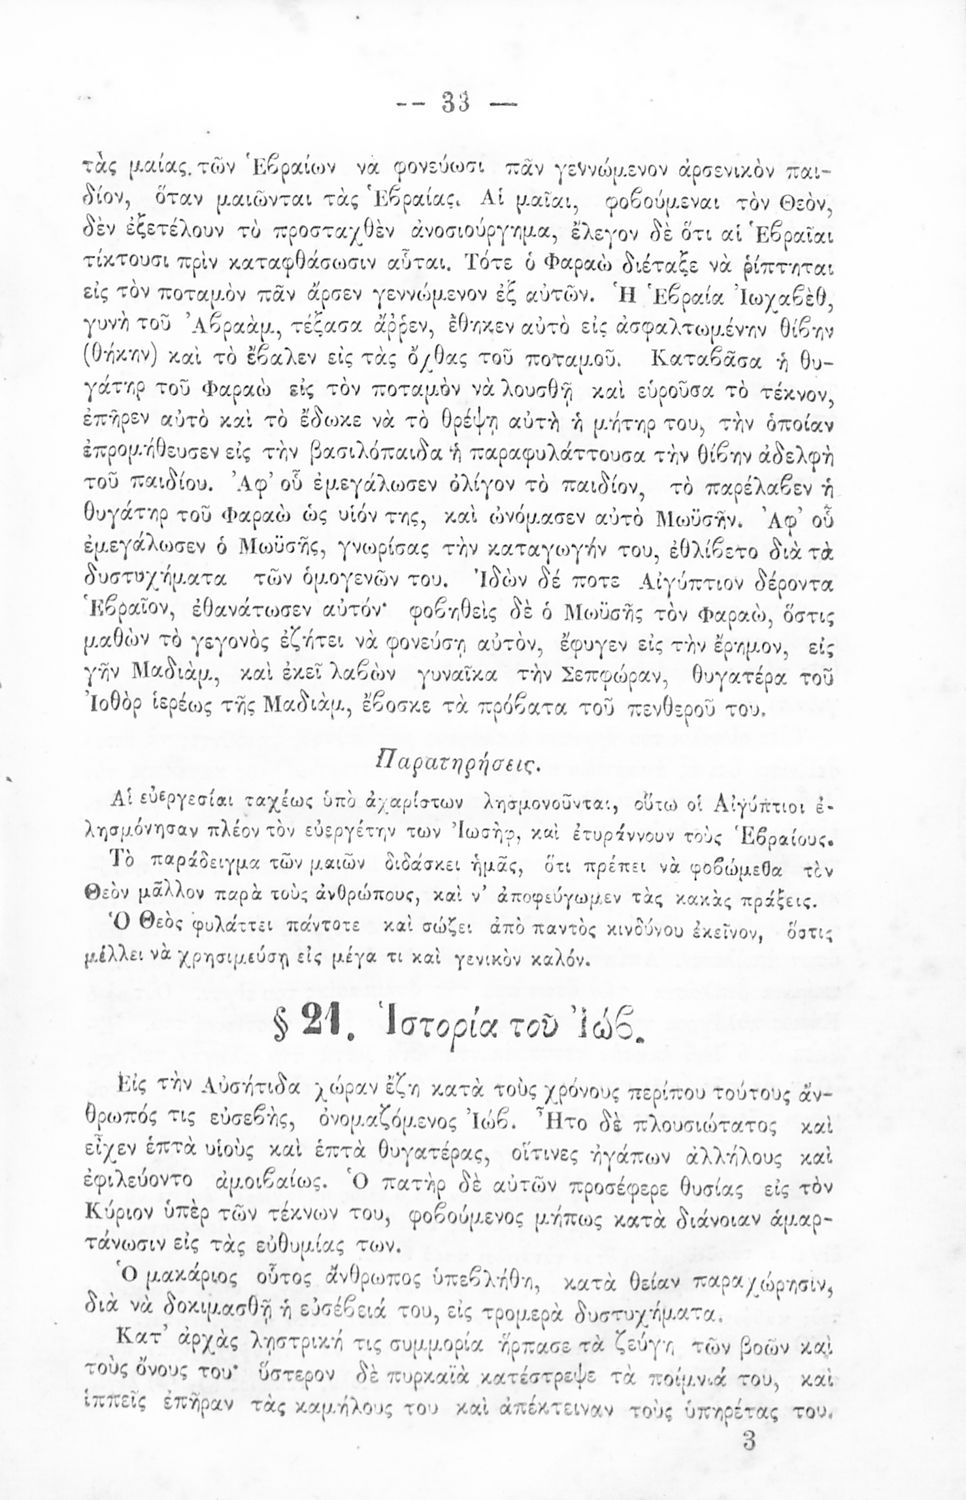 -- 33 —
τὰς μαίας. τῶν Ἑβραίων νὰ φονεύωσι πᾶν γεννώμενον ἀρσενικὸν παι-
δίον, ὅταν μαιῶνται τὰς Ἑβραίας. Αἱ μαῖαι, φοβούμεναι τὸν Θεὸν,
δὲν ἐξετέλουν τὸ προσταχθὲν ἀνοσιούργημα, ἔλεγον δὲ ὅτι αἱ Ἑβραῖαι
τίκτουσι πρὶν καταφθάσωσιν αὗται. Τότε ὁ Φαραὼ διέταξε νὰ ῥίπτηται
εἰς τὸν ποταμὸν πᾶν ἄρσεν γεννώμενον ἐξ αὐτῶν. Ἡ Ἑβραία Ἰωχαβὲθ,
γυνὴ τοῦ Ἀβραὰμ, τέξασα ἄῤῥεν, ἔθηκεν αὐτὸ εἰς ἀσφαλτωμένην θίβην
(θήκην) καὶ τὸ ἔβαλεν εἰς τὰς ὄχθας τοῦ ποταμοῦ. Καταβᾶσα ἡ θυ-
γάτηρ τοῦ Φαραὼ εἰς τὸν ποταμὸν νὰ λουσθῇ καὶ εὑροῦσα τὸ τέκνον,
ἐπῆρεν αὐτὸ καὶ τὸ ἔδωκε νὰ τὸ θρέψῃ αὐτὴ ἡ μήτηρ του, τὴν ὁποίαν
ἐπρομήθευσεν εἰς τὴν βασιλόπαιδα ἡ παραφυλάττουσα τὴν θίβην ἀδελφὴ
τοῦ παιδίου. Ἀφ' οὗ ἐμεγάλωσεν ὀλίγον τὸ παιδίον, τὸ παρέλαβεν ἡ
θυγάτηρ τοῦ Φαραὼ ὡς υἱόν της, καὶ ὠνόμασεν αὐτὸ Μωϋσῆν. Ἀφ' οὗ
ἐμεγάλωσεν ὁ Μωϋσῆς, γνωρίσας τὴν καταγωγήν του, ἐθλίβετο διὰ τὰ
δυστυχήματα τῶν ὁμογενῶν του. Ἰδὼν δέ ποτε Αἰγύπτιον δέροντα
Ἑβραῖον, ἐθανάτωσεν αὐτόν· φοβηθεὶς δὲ ὁ Μωϋσῆς τὸν Φαραὼ, ὅστις
μαθὼν τὸ γεγονὸς ἐζήτει νὰ φονεύσῃ αὐτὸν, ἔφυγεν εἰς τὴν ἔρημον, εἰς
γῆν Μαδιὰμ, καὶ ἐκεῖ λαβὼν γυναῖκα τὴν Σεπφώραν, θυγατέρα τοῦ
Ἰοθὸρ ἱερέως τῆς Μαδιὰμ, ἔβοσκε τὰ πρόβατα τοῦ πενθεροῦ του.
Παρατηρήσεις.
Αἱ εὐεργεσίαι ταχέως ὑπὸ ἀχαρίστων λησμονοῦνται, οὕτω οἱ Αἰγύπτιοι ἐ-
λησμόνησαν πλέον τὸν εὐεργέτην των Ἰωσὴφ, καὶ ἐτυράννουν τοὺς Ἑβραίους.
Τὸ παράδειγμα τῶν μαιῶν διδάσκει ἡμᾶς, ὅτι πρέπει νὰ φοβώμεθα τὸν
Θεὸν μᾶλλον παρὰ τοὺς ἀνθρώπους, καὶ ν' ἀποφεύγωμεν τὰς κακὰς πράξεις.
Ὁ Θεὸς φυλάττει πάντοτε καὶ σώζει ἀπὸ παντὸς κινδύνου ἐκεῖνον, ὅστις
μέλλει νὰ χρησιμεύσῃ εἰς μέγα τι καὶ γενικὸν καλόν.
§ 21. Ἱστορία τοῦ Ἰώβ.
Εἰς τὴν Αὐσήτιδα χώραν ἔζη κατὰ τοὺς χρόνους περίπου τούτους ἄν-
θρωπός τις εὐσεβὴς, ὀνομαζόμενος Ἰώβ. Ἦτο δὲ πλουσιώτατος καὶ
εἶχεν ἑπτὰ υἱοὺς καὶ ἑπτὰ θυγατέρας, οἵτινες ἠγάπων ἀλλήλους καὶ
ἐφιλεύοντο ἀμοιβαίως. Ὁ πατὴρ δὲ αὐτῶν προσέφερε θυσίας εἰς τὸν
Κύριον ὑπὲρ τῶν τέκνων του, φοβούμενος μήπως κατὰ διάνοιαν ἁμαρ-
τάνωσιν εἰς τὰς εὐθυμίας των.
Ὁ μακάριος οὗτος ἄνθρωπος ὑπεβλήθη, κατὰ θείαν παραχώρησιν,
διὰ νὰ δοκιμασθῇ ἡ εὐσέβειά του, εἰς τρομερὰ δυστυχήματα.
Κατ' ἀρχὰς λῃστρική τις συμμορία ἥρπασε τὰ ζεύγη τῶν βοῶν καὶ
τοὺς ὄνους του· ὕστερον δὲ πυρκαϊὰ κατέστρεψε τὰ ποίμνιά του, καὶ
ἱππεῖς ἐπῆραν τὰς καμήλους του καὶ ἀπέκτειναν τοὺς ὑπηρέτας του.
3